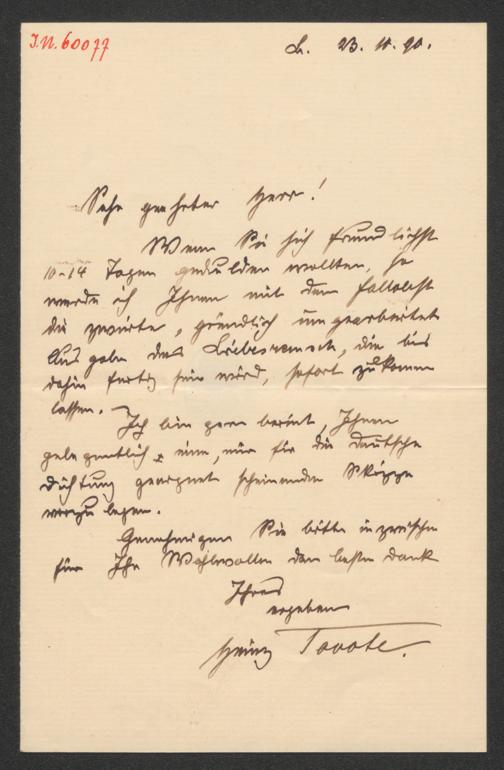 I.N. 60077
L. 23. 11. 90.
Sehr geehrter Herr!
Wenn Sie sich freundlichst
10-14 Tagen gedulden wollten, so
werde ich Ihnen mit dem Fallobst
die zweite, gründlich umgearbeitete
Ausgabe des Liebesrausch, die bis
dahin fertig sein wird, sofort zukommen
lassen.
Ich bin gern bereit, Ihnen
gelegentlich eine, mir für die Deutsche
Dichtung geeignet scheinende Skizze
vorzulegen.
Genehmigen Sie bitte inzwischen
für Ihr Wohlwollen den besten Dank
Ihres
ergebenen
Heinz Tovote.